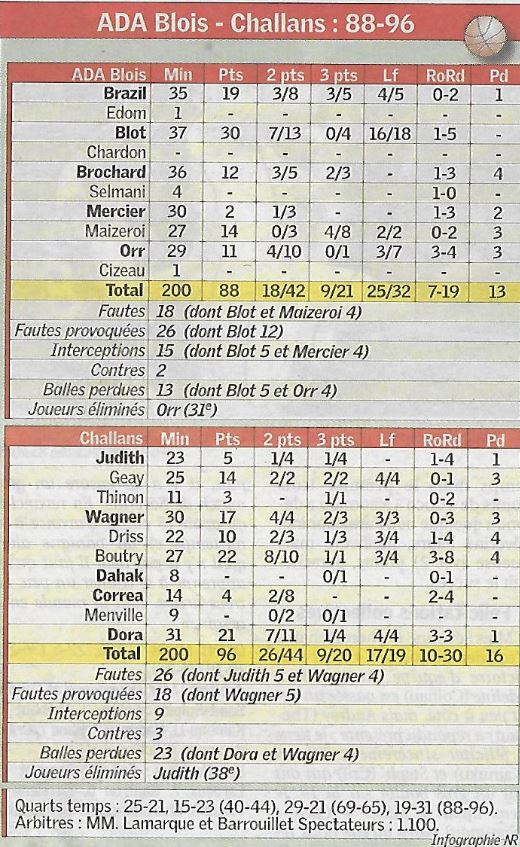 ADA Blois - Challans : 88-96
ADA Blois Min Pts 2 pts 3 pts Lf RoRd Pd
Brazil 35 19 3/8 3/5 4/5 0-2 1
Edom 1 - - - - - -
Blot 37 30 7/13 0/4 16/18 1-5 -
Chardon - - - - - - -
Brochard 36 12 3/5 2/3 - 1-3 4
Selmani 4 - - - - 1-0 -
Mercier 30 2 1/3 - - 1-3 2
Maizeroi 27 14 0/3 4/8 2/2 0-2 3
Orr 29 11 4/10 0/1 3/7 3-4 3
Cizeau 1 - - - - - -
Total 200 88 18/42 9/21 25/32 7-19 13
Fautes 18 (dont Blot et Maizeroi 4)
Fautes provoquées 26 (dont Blot 12)
Interceptions 15 (dont Blot 5 et Mercier 4)
Contres 2
Balles perdues 13 (dont Blot 5 et Orr 4)
Joueurs éliminés Orr (31e)
Challans Min Pts 2 pts 3 pts Lf RoRd Pd
Judith 23 5 1/4 1/4 - 1-4 1
Geay 25 14 2/2 2/2 4/4 0-1 3
Thinon 11 3 - 1/1 - 0-2 -
Wagner 30 17 4/4 2/3 3/3 0-3 3
Driss 22 10 2/3 1/3 3/4 1-4 4
Boutry 27 22 8/10 1/1 3/4 3-8 4
Dahak 8 - - 0/1 - 0-1 -
Correa 14 4 2/8 - - 2-4 -
Menville 9 - 0/2 0/1 - - -
Dora 31 21 7/11 1/4 4/4 3-3 1
Total 200 96 26/44 9/20 17/19 10-30 16
Fautes 26 (dont Judith 5 et Wagner 4)
Fautes provoquées 18 (dont Wagner 5)
Interceptions 9
Contres 3
Balles perdues 23 (dont Dora et Wagner 4)
Joueurs éliminés Judith (38e)
Quarts temps : 25-21, 15-23 (40-44), 29-21 (69-65), 19-31 (88-96).
Arbitres : MM. Lamarque et Barrouillet Spectateurs : 1.100.
Infographie NR